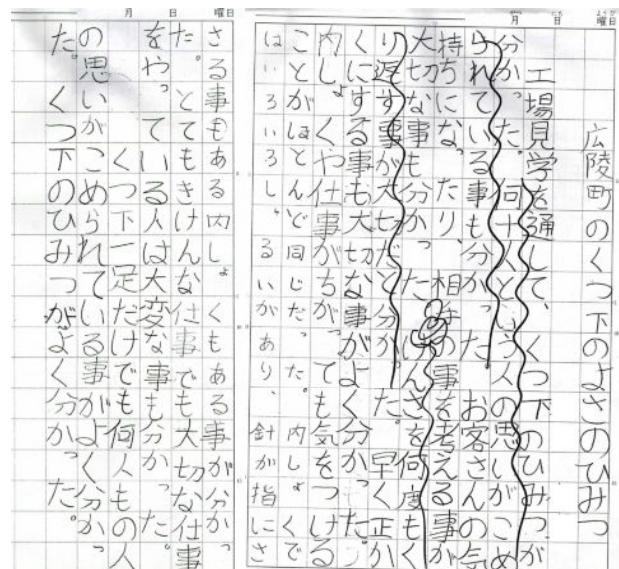 月 日 曜日
広陵町のくつ下のよさのひみつ
工場見学を通して、くつ下のひみつが
分かった。何十人という人の思いがこめ
られている事も分かった。お客さんの気
持ちになったり、相手の事を考える事が
大切な事も分かった。けんさを何度もく
り返す事が大切だと分かった。早く正か
くにする事も大切な事がよく分かった。
内しょくや仕事がちがっても気をつける
ことがほとんど同じだった。内しょくで
はいろいろしゅるいがあり、針が指にさ
月 日 曜日
さる事もある内しょくもある事が分かっ
た。とてもきけんな仕事でも大切な仕事
をやっている人は大変な事も分かった。
くつ下一足だけでも何人もの人
の思いがこめられている事がよく分かっ
た。くつ下のひみつがよく分かった。